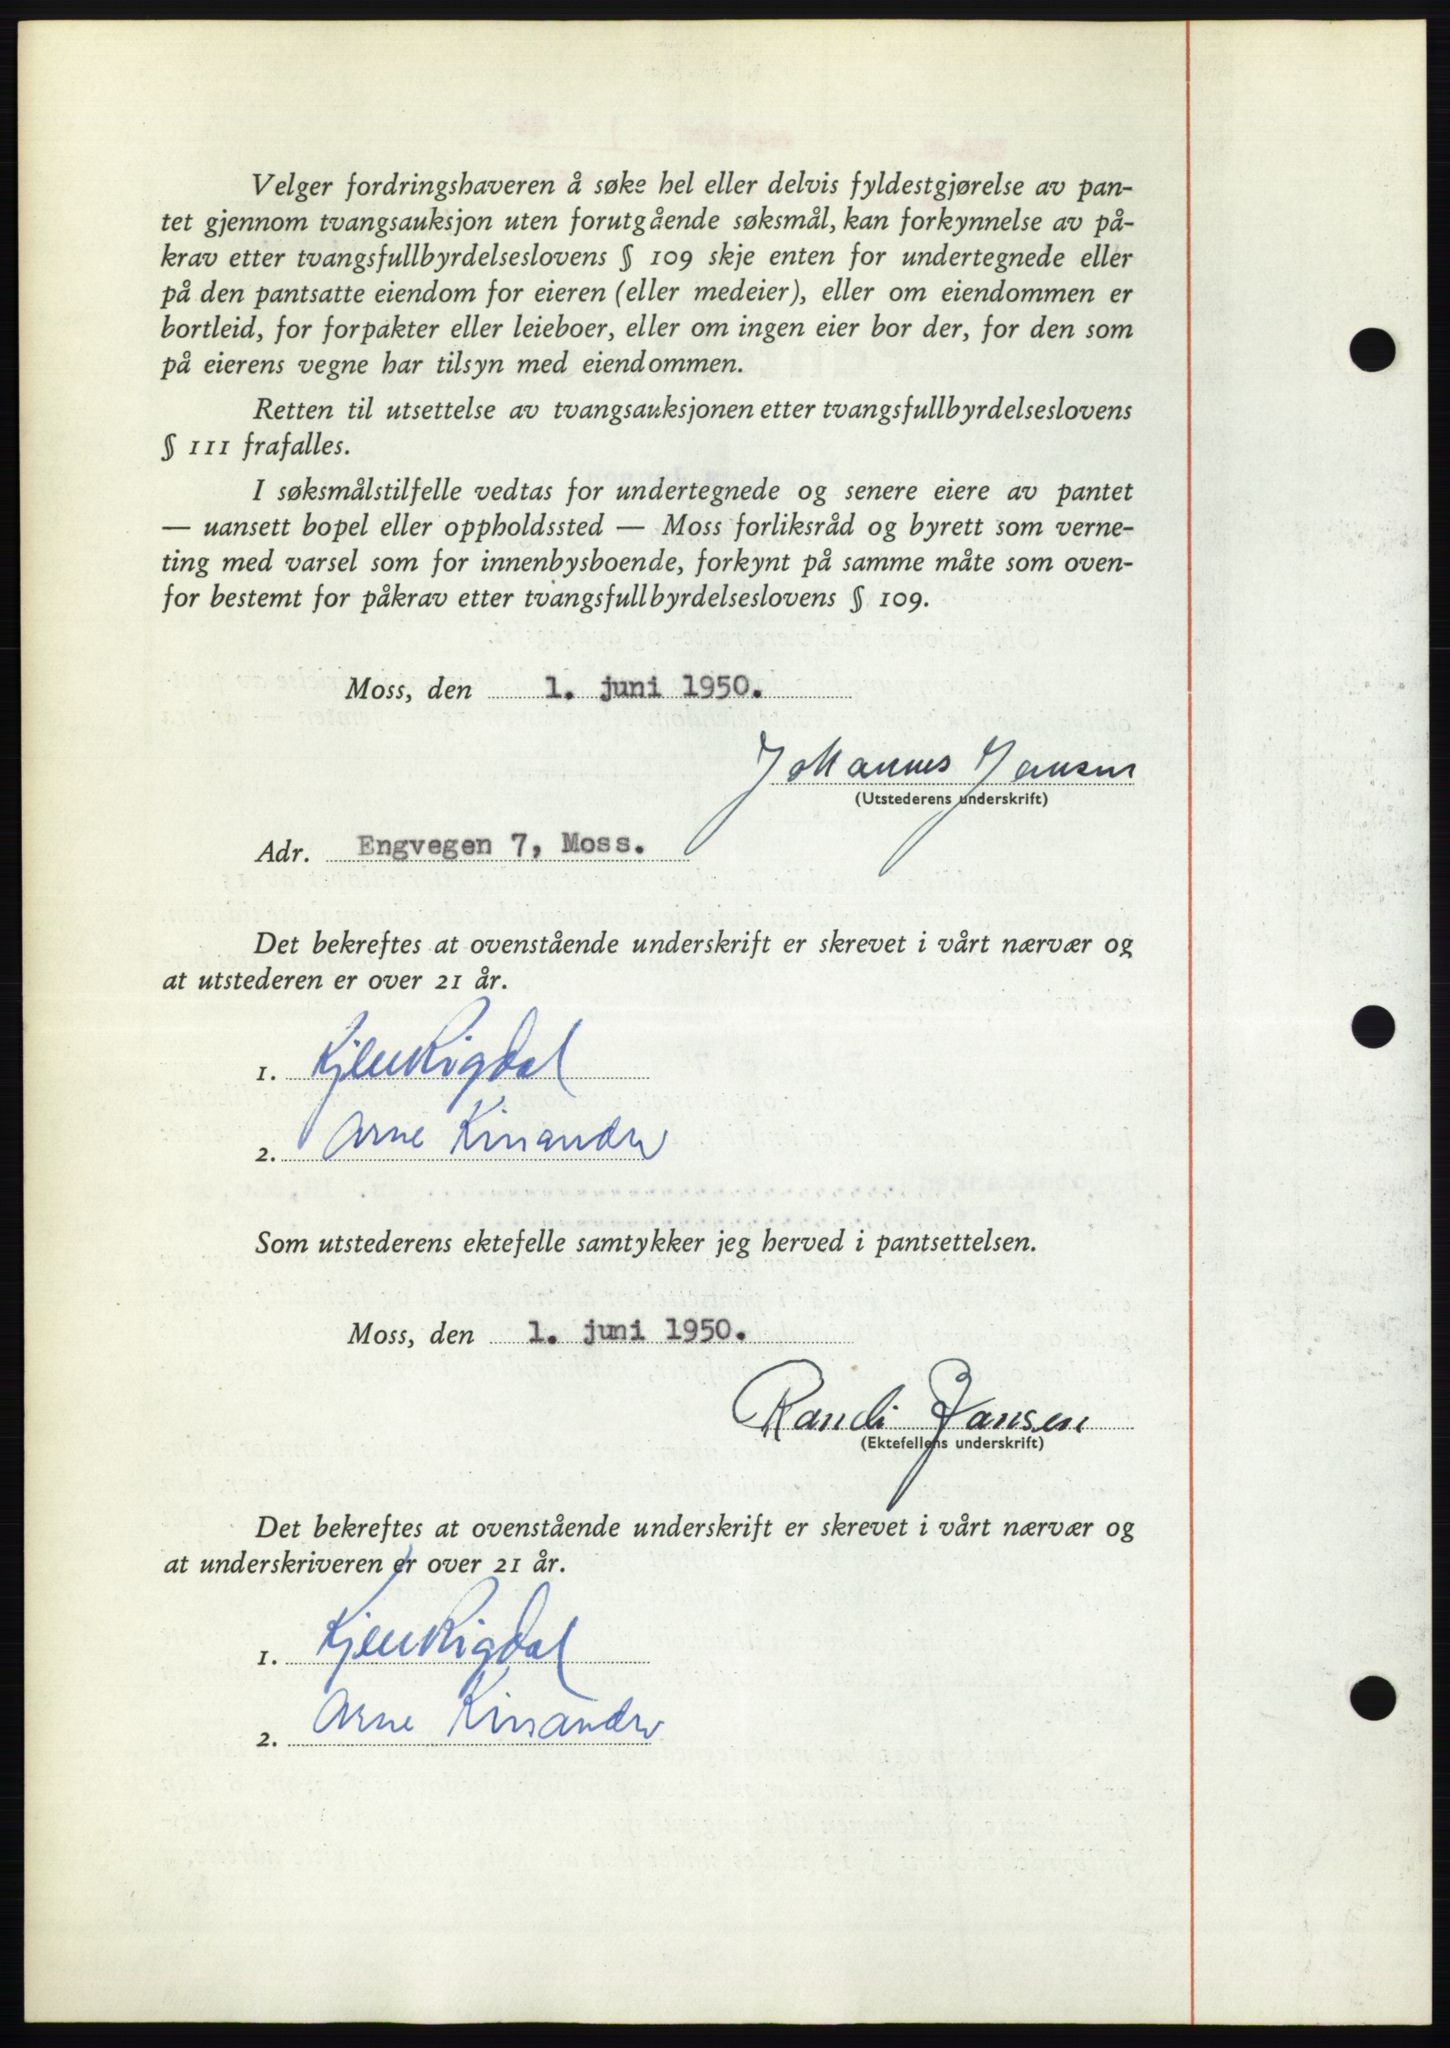 Velger fordringshaveren å søke hel eller delvis fyldestgjørelse av pan-
tet gjennom tvangsauksjon uten forutgående søksmål, kan forkynnelse av på-
krav etter tvangsfullbyrdelseslovens § 109 skje enten for undertegnede eller
på den pantsatte eiendom for eieren (eller medeier), eller om eiendommen er
bortleid, for forpakter eller leieboer, eller om ingen eier bor der, for den som
på eierens vegne har tilsyn med eiendommen.
Retten til utsettelse av tvangsauksjonen etter tvangsfullbyrdelseslovens
§ 111 frafalles.
I søksmålstilfelle vedtas for undertegnede og senere eiere av pantet
— uansett bopel eller oppholdssted — Moss forliksråd og byrett som verne-
ting med varsel som for innenbysboende, forkynt på samme måte som oven-
for bestemt for påkrav etter tvangsfullbyrdelseslovens § 109.
Moss, den 1. juni 1950.
Johannes Jansen
(Utstederens underskrift)
Adr. Engvegen 7, Moss.
Det bekreftes at ovenstående underskrift er skrevet i vårt nærvær og
at utstederen er over 21 år.
1. Rigdal
2. Arne
Som utstederens ektefelle samtykker jeg herved i pantsettelsen.
Moss, den 1. juni 1950.
Randi Jansen
(Ektefellens underskrift)
Det bekreftes at ovenstående underskrift er skrevet i vårt nærvær og
at underskriveren er over 21 år.
1. Rigdal
2. Arne